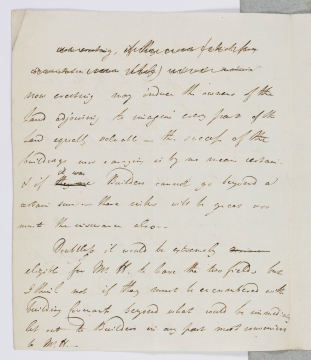 now erecting,
now erecting may induce the owners of the
land adjoining to imagine every part of the
land equally valuable – the success of these
buildings now carrying is by no means certain
& if it was Builders cannot go beyond a
certain sum – these rides will be great and
must the insurance also –
Doubtless it would be extremely
eligible for Mr. H. to have the two fields but
I think not if they must be encumbered with
building Covenants beyond what would be
let out to Builders in any part most convenient
to Mr. H. –